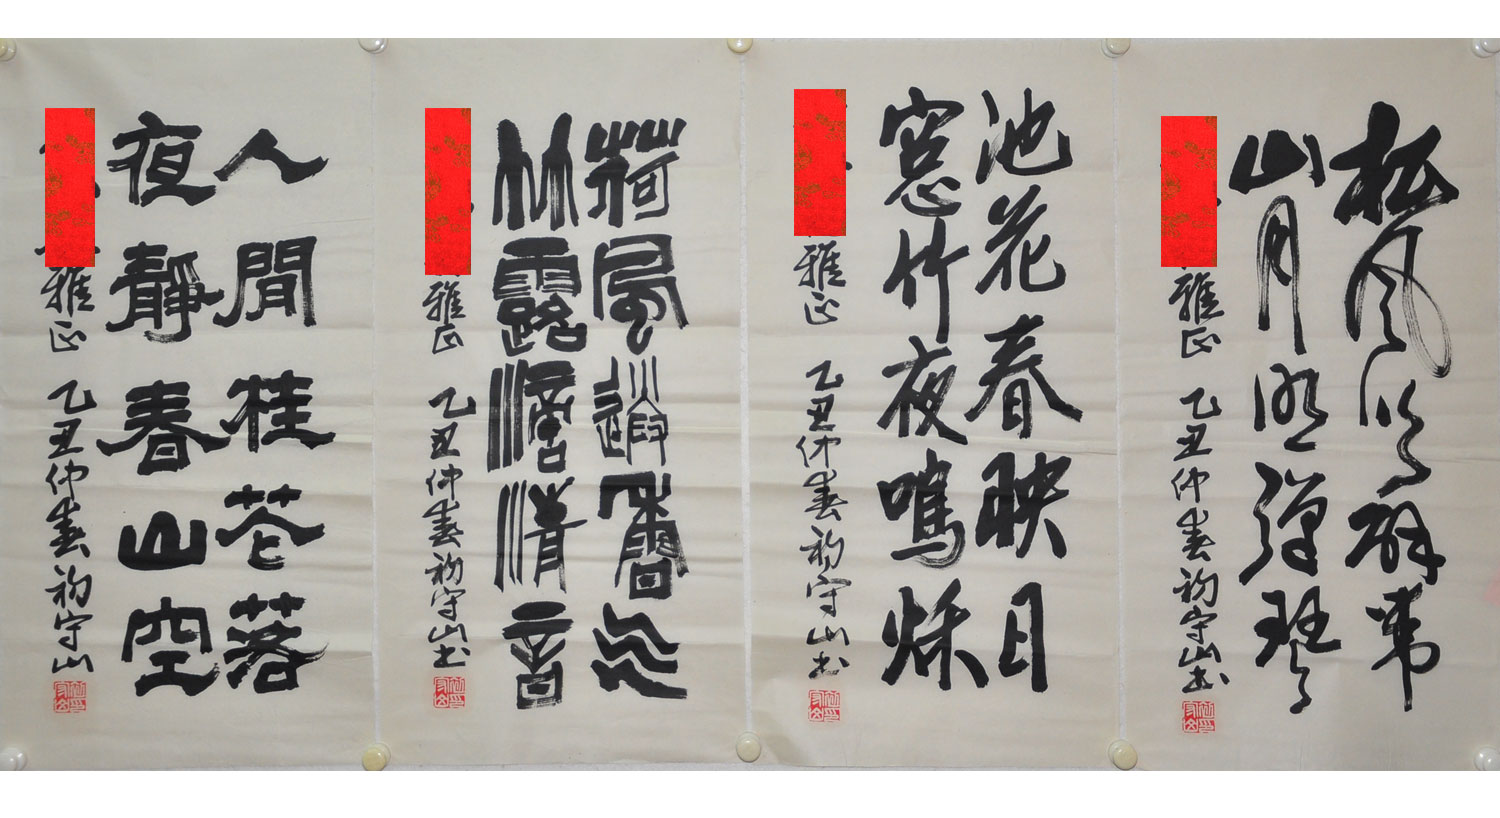 松風吹解帶
山月照彈琴
雅正 乙丑仲春初守山书
池花春映日
窓竹夜鳴秌
雅正 乙丑仲春初守山书
荷風香气
竹露澹清音
雅正 乙丑仲春初守山书
人間桂花落
夜靜春山空
雅正 乙丑仲春初守山